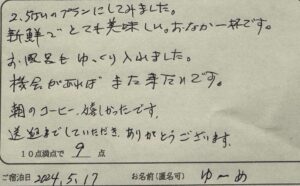 2.5hのプランにしてみました。
新鮮でとても美味しい。おなか一杯です。
お風呂もゆっくり入れました。
機会があればまた来たいです。
朝のコーヒー、嬉しかったです。
送迎までしていただき、ありがとうございます。
10点満点で 9 点
ご宿泊日 2024.5.17 お名前(匿名可) ゆーめ